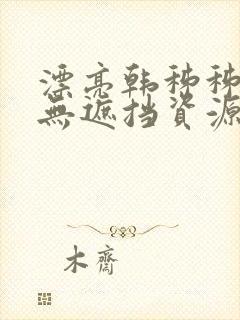 漂亮韩秭秭
無遮挡資源
木齋